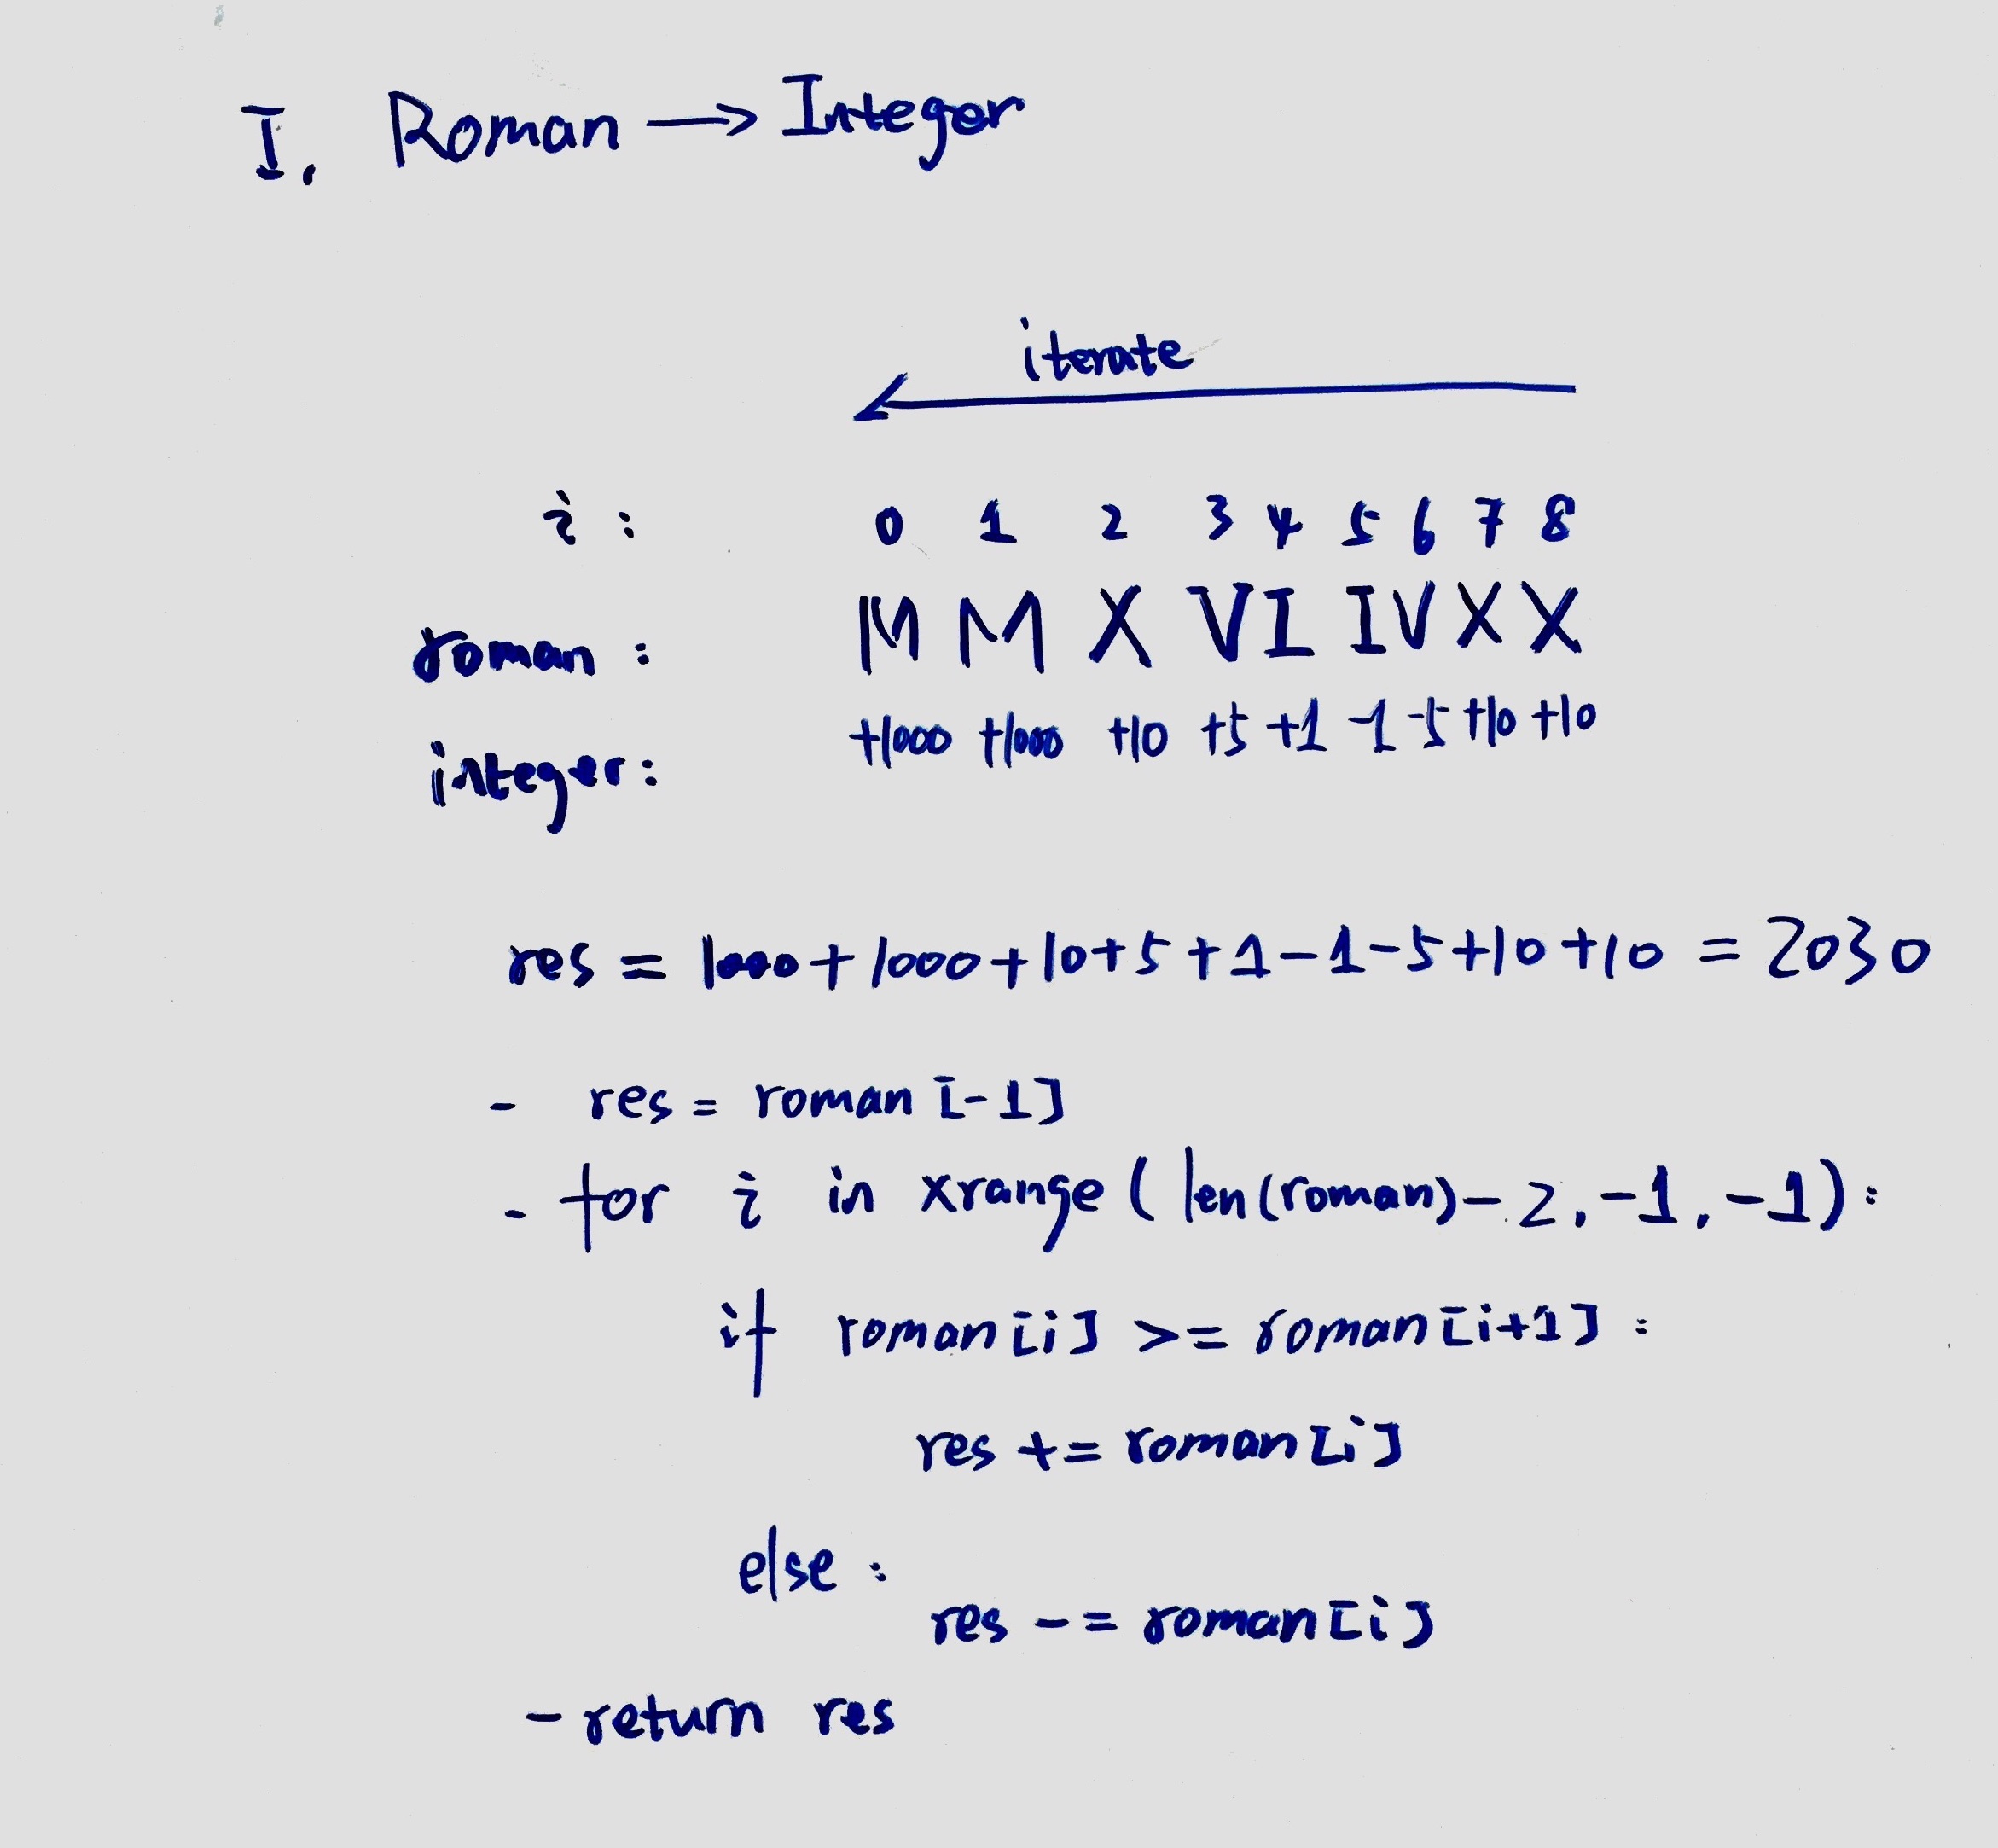 I. Roman → Integer
iterate
i : 0 1 2 3 4 5 6 7 8
roman : M M X V I I V X X
integer: +1000 +1000 +10 +5 +1 -1 -5 +10 +10
res = 1000+1000+10+5+1-1-5+10+10 = 2030
- res = roman [-1]
- for i in xrange ( len(roman)-2, -1, -1):
if roman[i] >= roman[i+1] :
res += roman[i]
else :
res -= roman[i]
- return res